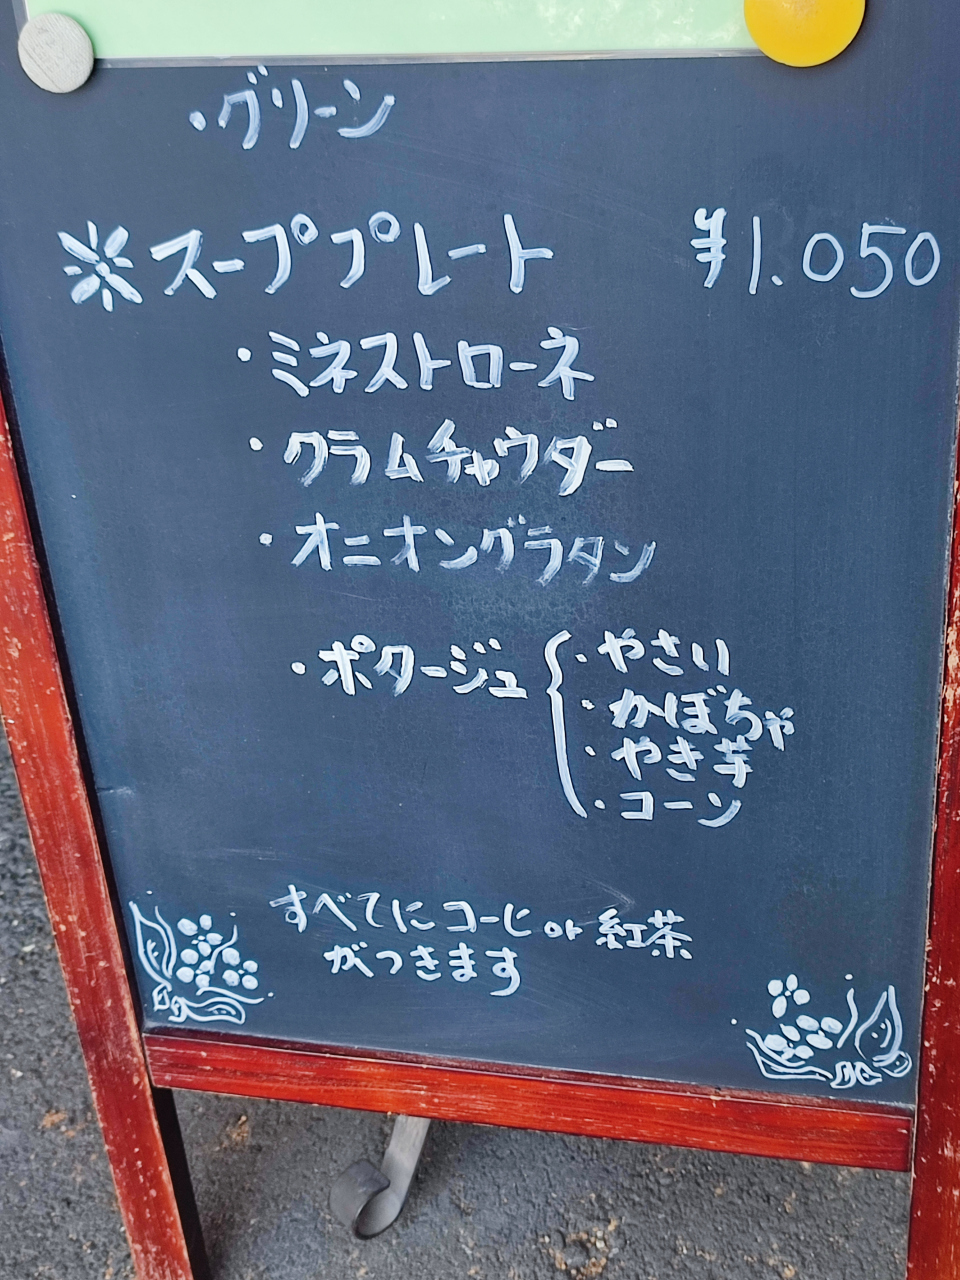 ・グリーン
※スーププレート ¥1.050
・ミネストローネ
・クラムチャウダー
・オニオングラタン
・ポタージュ { ・やさい
・かぼちゃ
・やき芋
・コーン
すべてにコーヒ or 紅茶
がつきます